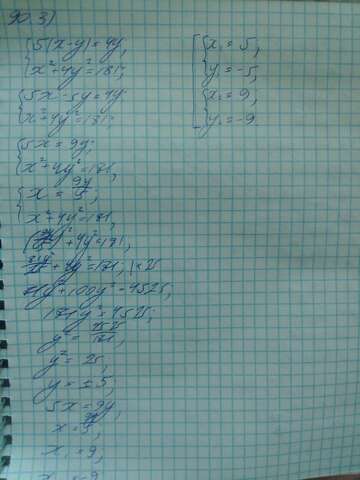 90.3)
{5(x-y)=4y,
{x²+4y²=181;
{5x-5y=4y
{x²+4y²=181;
{5x=9y;
{x²+4y²=181,
{x=9y/5,
{x²+4y²=181,
(9y/5)²+4y²=181,
81y²/25+4y²=181; |×25
81y²+100y²=4525;
181y²=4525;
y²=4525/181,
y²=25,
y=±5;
5x=9y,
x₁=9;
[{x₁=5,
{y₁=-5;
{x₁=9;
{y₁=-9